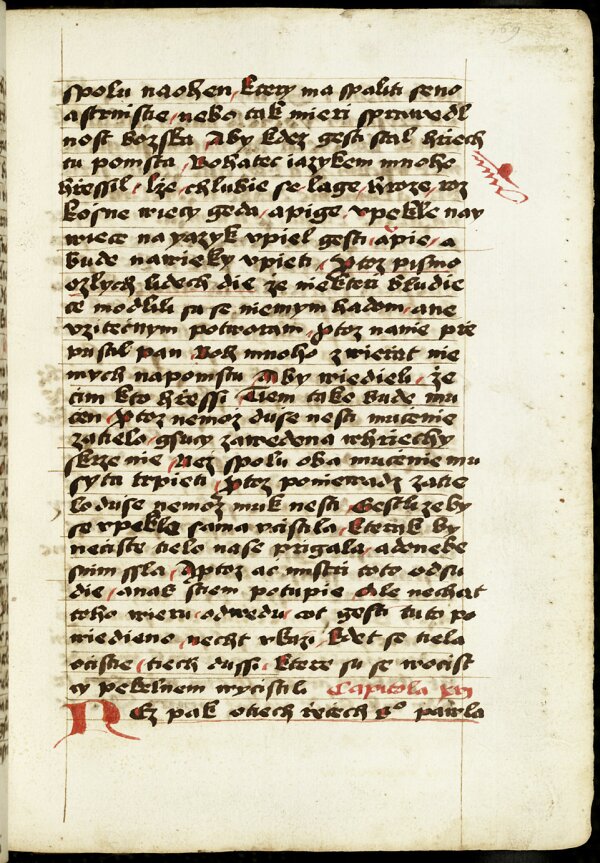 spolu naohen, ktery ma spaliti seno
astrnistie, nebo tak mieri sprawedl
nost bozska Aby kdez gesti stal hriech
tu pomsta, Bohatec iazykem mnoho
hressil, lze, chlubie se, lage, hroze, roz
kosne wiecy geda, apige, vpekle nay
wiece nayazyk vpiel gesti, apie, a
bude nawieky vpieti, Protoz pismo
ozlych lidech die ze niekteri bludie
ce modlili su se niemym hadom, ane
vzitecnym potworam, Protoz nanie pre
pustil pan Boh mnoho zwierat nie
mych napomstu Aby wiedieli, ze
cim kto hressi Tiem take bude mu
cen, Protoz nemoz duse nesti mucenie
zatielo, gsucy zawedena whriechy
skrze nie, Nez spolu oba mucenie mu
syta trpieti, Protoz poniewadz zatie
lo duse nemoz muk nesti, Gestlizeby
se vpekle sama vcistila, kterak by
neciste tielo nase prigala, adonebe
snim ssla, Aprotoz ac mistri toto odsu
die, anas stiem potupie Ale nechat
toho wieru, odwedu, cot gesti tuto po
wiedieno, necht vkazi, kdet se tiela
ocistie, tiech dussi, ktere su se wocist
cy pekelnem wycistili Capitola xvi
NEz pak otiech rzecech so pawla